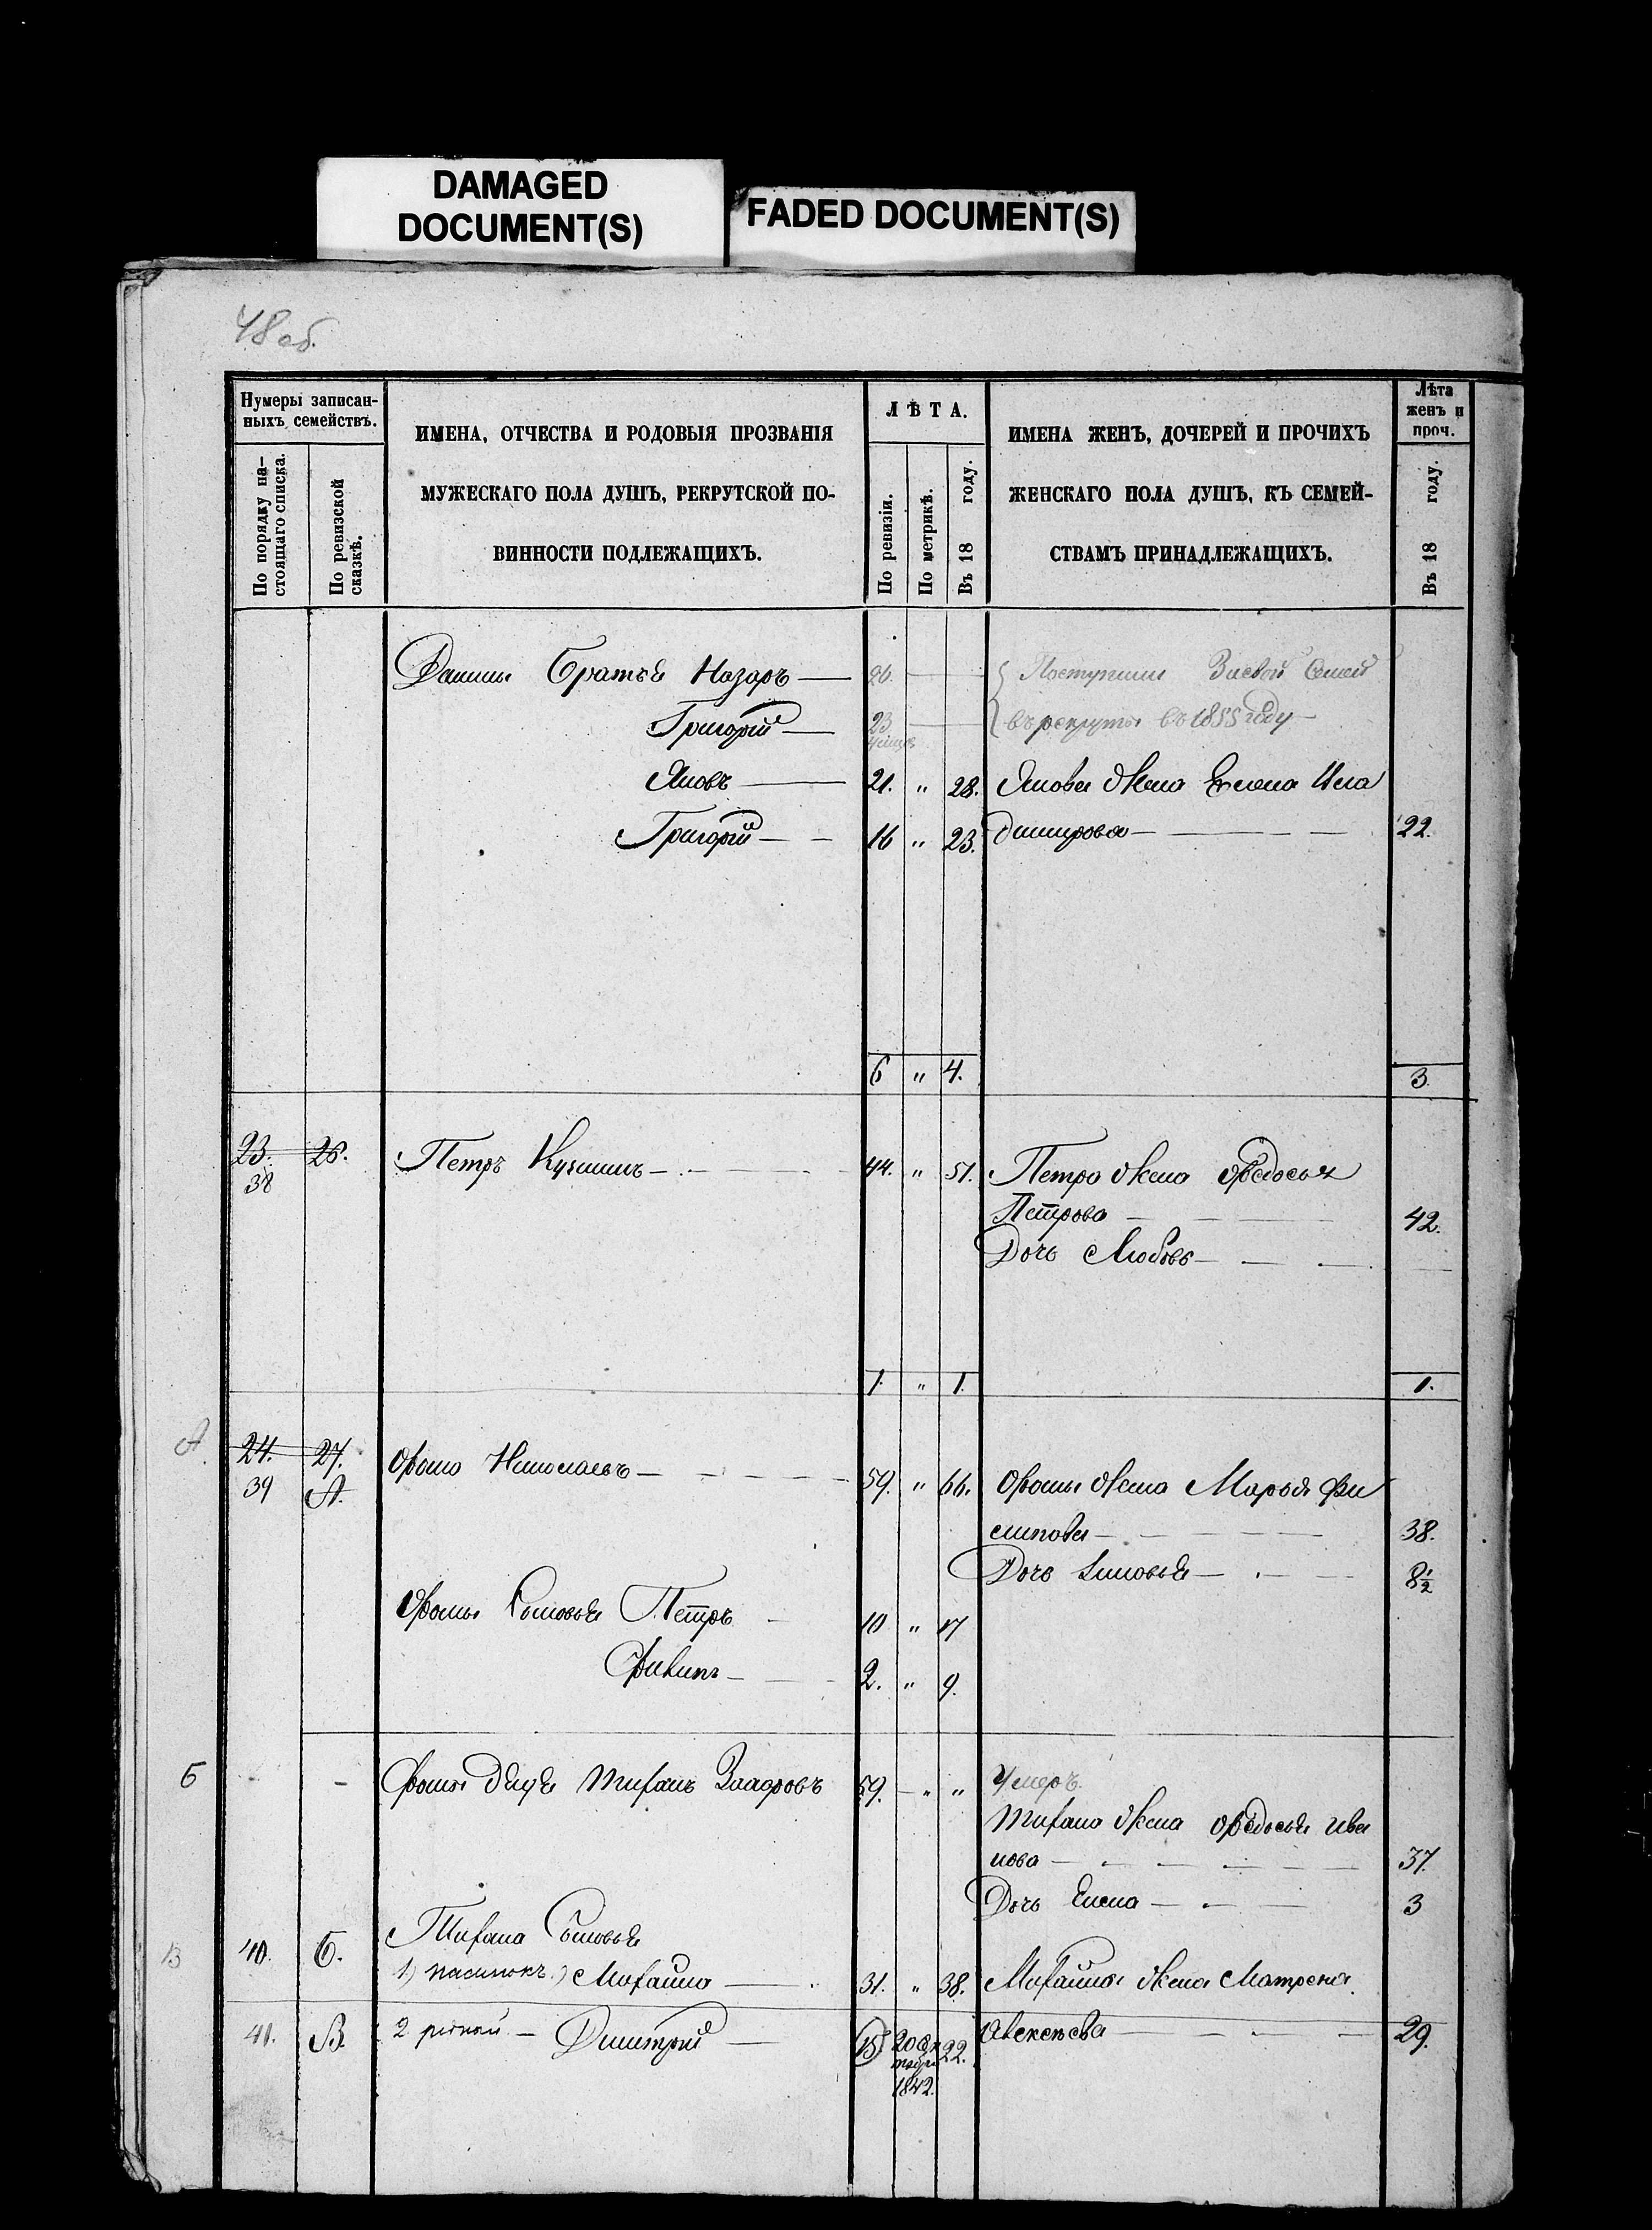 DAMAGED
DOCUMENT(S)
FADED DOCUMENT(S)
48 об.
Нумеры записан-
ныхъ семействъ.
По порядку на-
стоящаго списка.
По ревизской
сказкѣ.
ИМЕНА, ОТЧЕСТВА И РОДОВЫЯ ПРОЗВАНІЯ
МУЖЕСКАГО ПОЛА ДУШЪ, РЕКРУТСКОЙ ПО-
ВИННОСТИ ПОДЛЕЖАЩИХЪ.
ЛѢТА.
По ревизіи.
По метрикѣ.
Въ 18 году.
ИМЕНА ЖЕНЪ, ДОЧЕРЕЙ И ПРОЧИХЪ
ЖЕНСКАГО ПОЛА ДУШЪ, КЪ СЕМЕЙ-
СТВАМЪ ПРИНАДЛЕЖАЩИХЪ.
Лѣта
женъ и
проч.
Въ 18 году.
Данилы Братья Назаръ — 26. — { Поступили
Григорій — 23 — { въ рекруты въ 1855 году —
Яковъ — 21. " 28. Якова жена Елена Ила
Григорій — 16 " 23. димирова — 22.
6 " 4. 3.
23. 26. Петръ Кузминъ — 44. " 51. Петра жена Ѳедосья
38 Петрова — 42.
Дочь Любовь —
1. " 1. 1.
А
24. 27. Ѳома Николаевъ — 59. " 66. Ѳомы жена Марья Фи
39 А. липова — 38.
Дочь Зиновья — 8½
Ѳомы Сыновья Петръ 10 " 17
Филипъ — 2. " 9.
Б — Ѳомы дядя Тиханъ Захаровъ 59. — " " Умеръ.
Тихана жена Ѳедосья Ива
нова — 37.
Дочь Елена — 3
Тихана Сыновья
В 40. Б. 1) пасынокъ) Михайла — 31. " 38. Михайлы жена Матрена
41. В. 2 родной — Дмитрій — 15 20 Ок 22. Авексѣева — 29.
тября
1842.